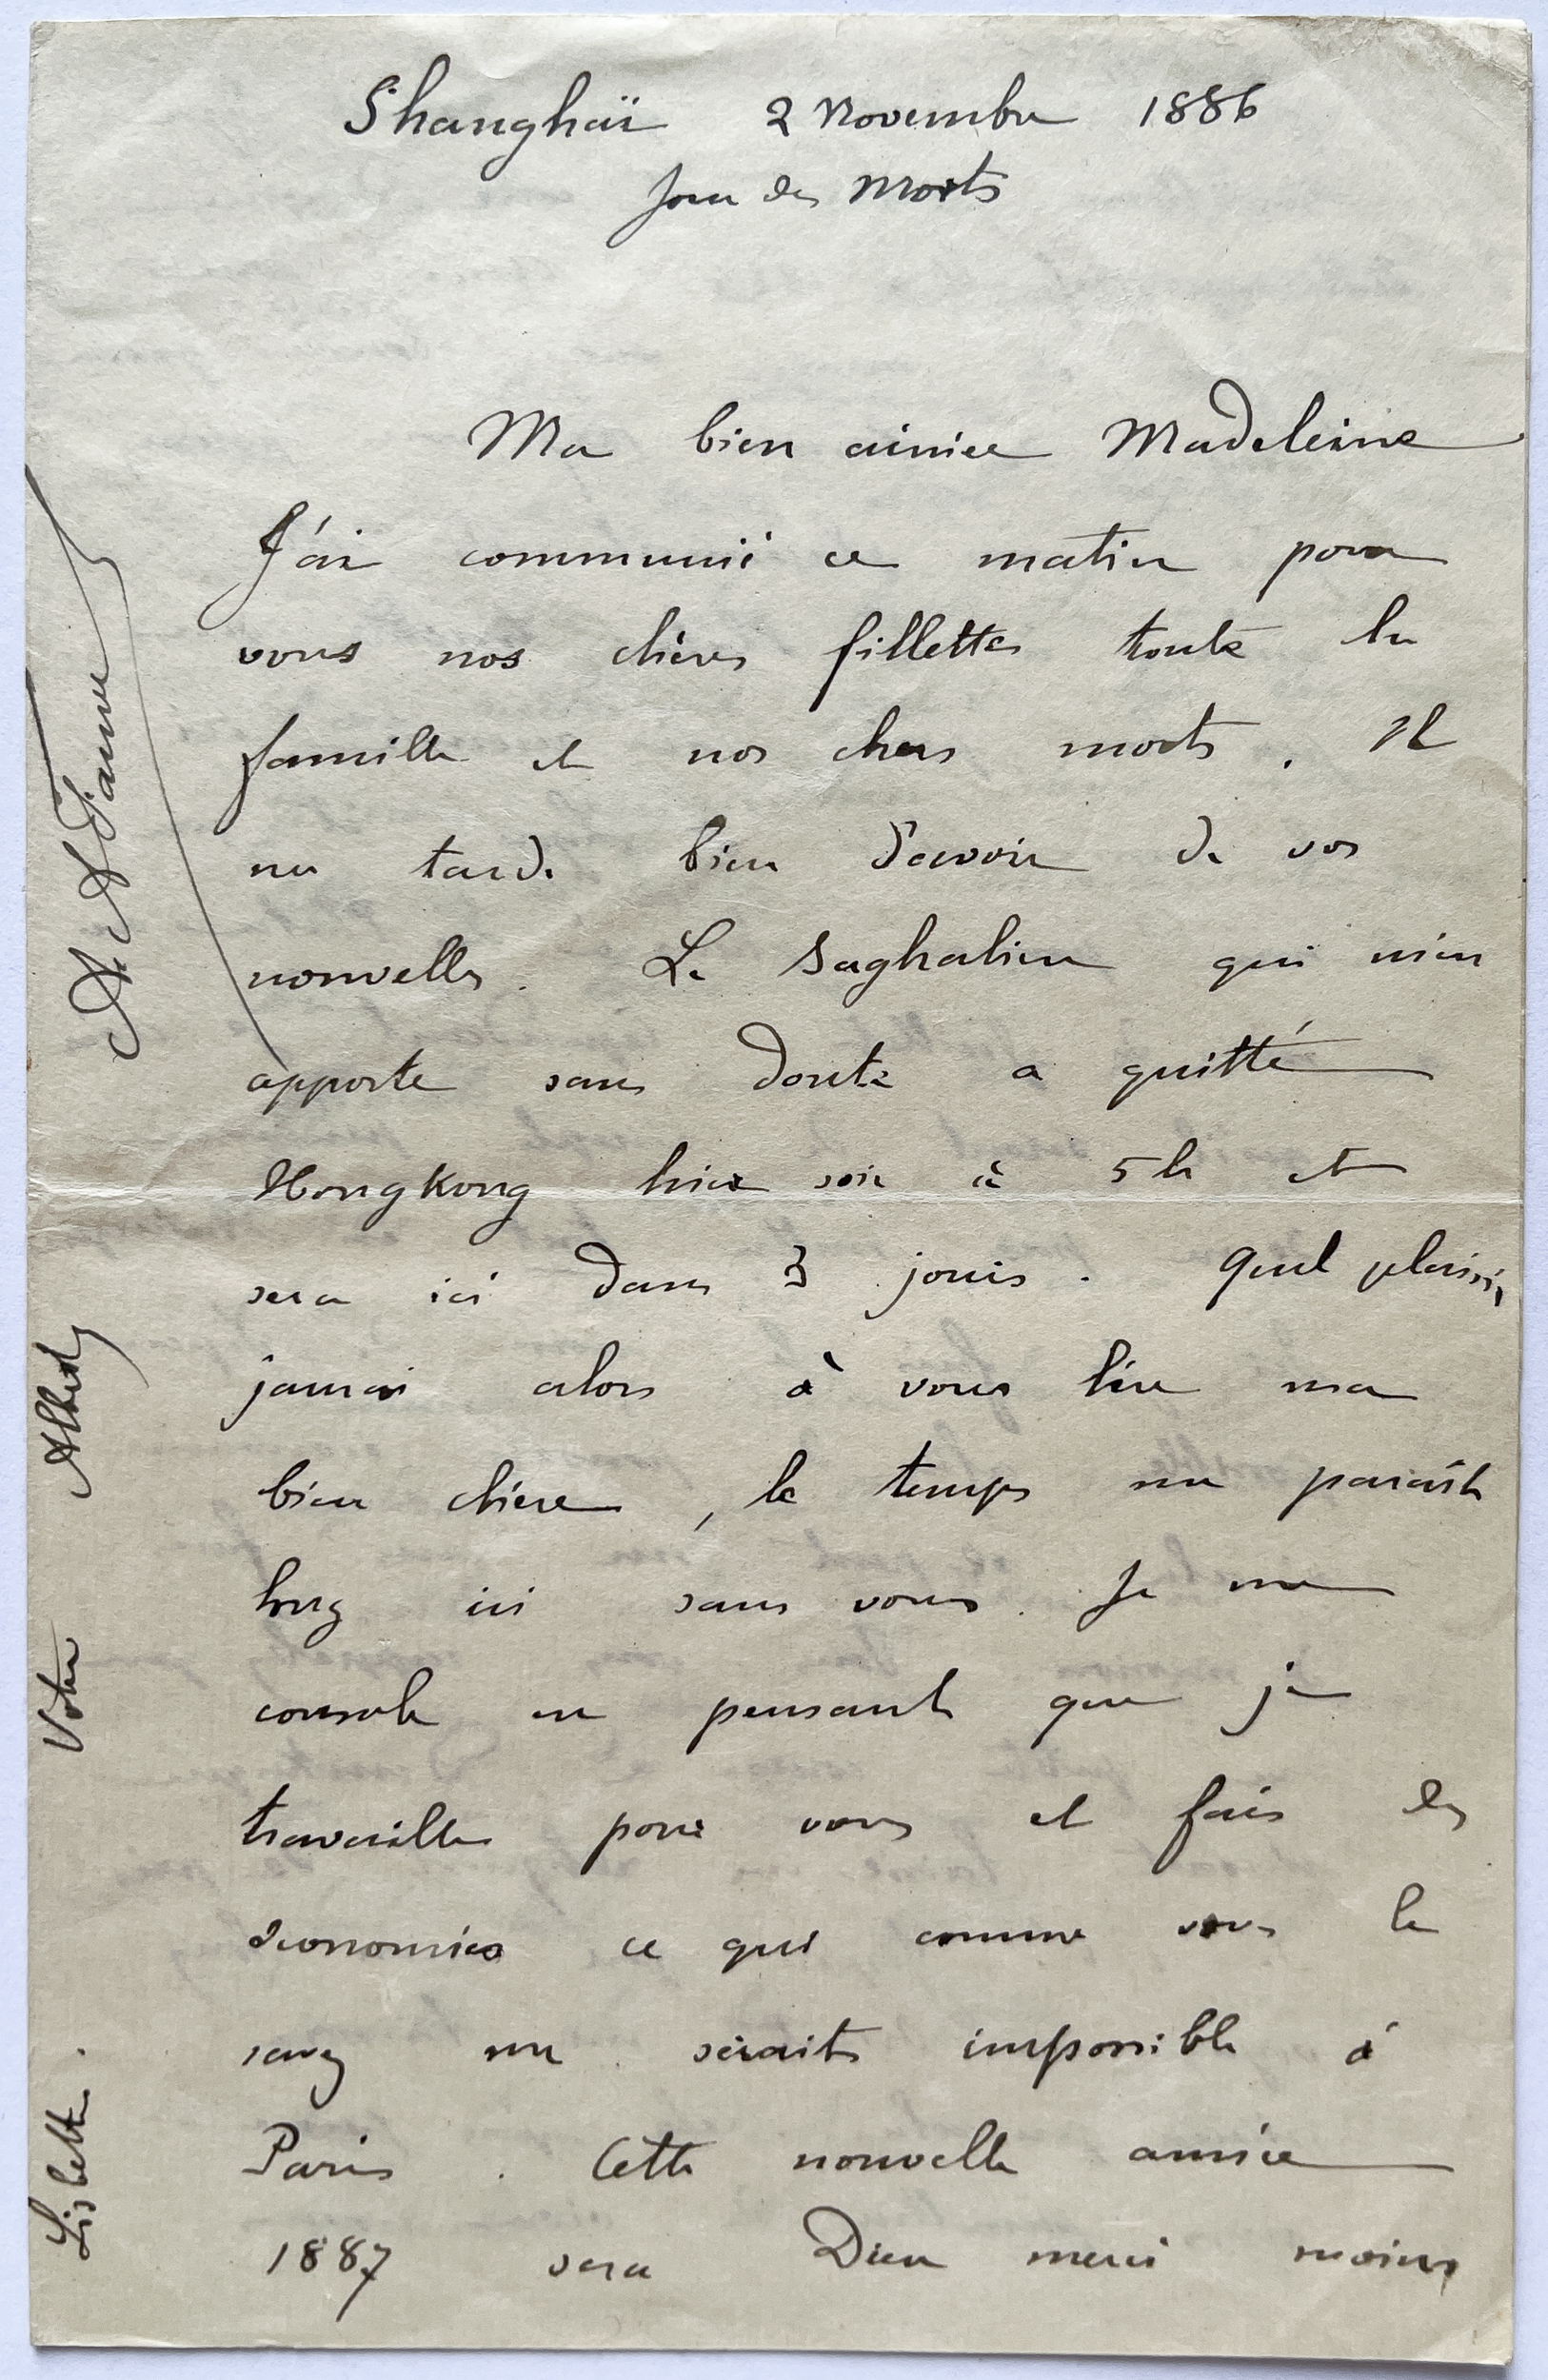 Shanghaï 2 Novembre 1886
Jour des Morts
Ma bien aimée Madeleine
J'ai communié ce matin pour
vous nos chères fillettes toute la
famille et nos chers morts. Il
me tarde bien d'avoir de vos
nouvelles. Le Saghalien qui m'en
apporte sans doute a quitté
Hong Kong hier soir à 5 h et
sera ici dans 3 jours. Quel plaisir
j'aurai alors à vous lire ma
bien chère, le temps me paraît
long ici sans vous. Je me
console en pensant que je
travaille pour vous et fais des
économies ce qui comme vous le
savez me serait impossible à
Paris. Cette nouvelle année
1887 sera Dieu merci moins
Lisbeth.
Votre Albert